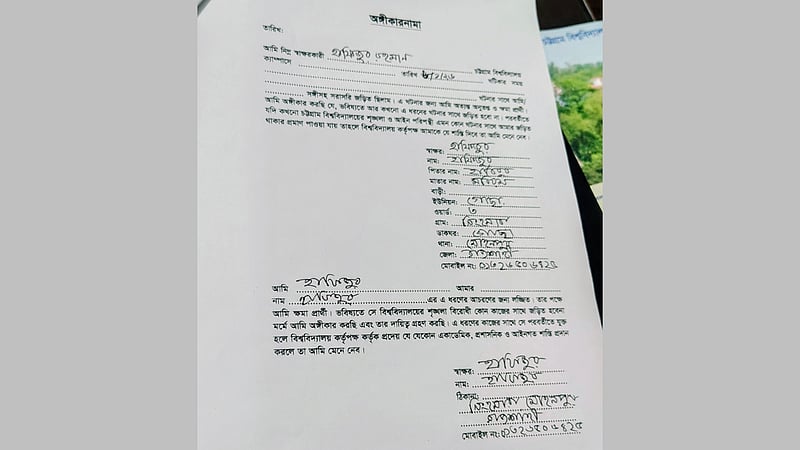 অঙ্গীকারনামা
চট্টগ্রাম বিশ্ববিদ্যালয়
তারিখ:
আমি নিম্ন স্বাক্ষরকারী হাফিজুর রহমান
তারিখ চট্টগ্রাম বিশ্ববিদ্যালয়
ক্যাম্পাসে ঘটিকার সময়
ঘটনার সাথে আমি/
সঙ্গীসহ সরাসরি জড়িত ছিলাম। এ ঘটনার জন্য আমি অত্যন্ত অনুতপ্ত ও ক্ষমা প্রার্থী।
আমি অঙ্গীকার করছি যে, ভবিষ্যতে আর কখনো এ ধরনের ঘটনার সাথে জড়িত হবো না। পরবর্তীতে
যদি কখনো চট্টগ্রাম বিশ্ববিদ্যালয়ের শৃঙ্খলা ও আইন পরিপন্থী এমন কোন ঘটনার সাথে আমার জড়িত
থাকার প্রমাণ পাওয়া যায় তাহলে বিশ্ববিদ্যালয় কর্তৃপক্ষ আমাকে যে শাস্তি দিবে তা আমি মেনে নেব।
স্বাক্ষর: হাফিজুর
নাম: হাফিজুর
পিতার নাম:
মাতার নাম:
বাড়ী:
ইউনিয়ন:
ওয়ার্ড: ৩
গ্রাম:
ডাকঘর:
থানা: মোহনপুর
জেলা: রাজশাহী
মোবাইল নং:
আমি হাফিজুর আমার
নাম হাফিজুর এর এ ধরণের আচরণের জন্য লজ্জিত। তার পক্ষে
আমি ক্ষমা প্রার্থী। ভবিষ্যতে সে বিশ্ববিদ্যালয়ের শৃঙ্খলা বিরোধী কোন কাজের সাথে জড়িত হবেনা
মর্মে আমি অঙ্গীকার করছি এবং তার দায়িত্ব গ্রহণ করছি। এ ধরণের কাজের সাথে সে পরবর্তীতে যুক্ত
হলে বিশ্ববিদ্যালয় কর্তৃপক্ষ কর্তৃক প্রদেয় যে যেকোন একাডেমিক, প্রশাসনিক ও আইনগত শাস্তি প্রদান
করলে তা আমি মেনে নেব।
স্বাক্ষর: হাফিজুর
নাম: হাফিজুর
ঠিকানা:
মোহনপুর
রাজশাহী
মোবাইল নং: